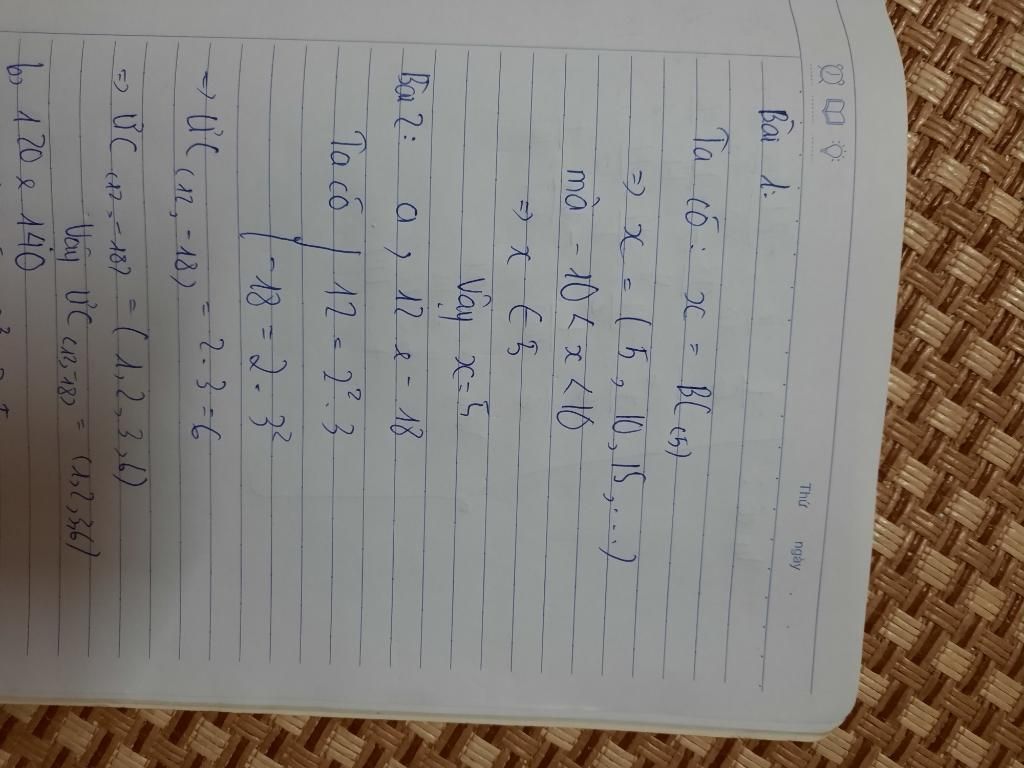 Thứ ngày
Bài 1:
Ta có: x = B(5)
=> x = (5, 10, 15, ...)
mà -10 < x < 10
=> x ∈ 5
Vậy x = 5
Bài 2: a, 12 & -18
Ta có { 12 = 2². 3
-18 = 2. 3²
=> ƯC (12, -18) = 2. 3 = 6
=> ƯC (12, -18) = (1, 2, 3, 6)
Vậy ƯC (12, -18) = (1, 2, 3, 6)
b, 120 & 140